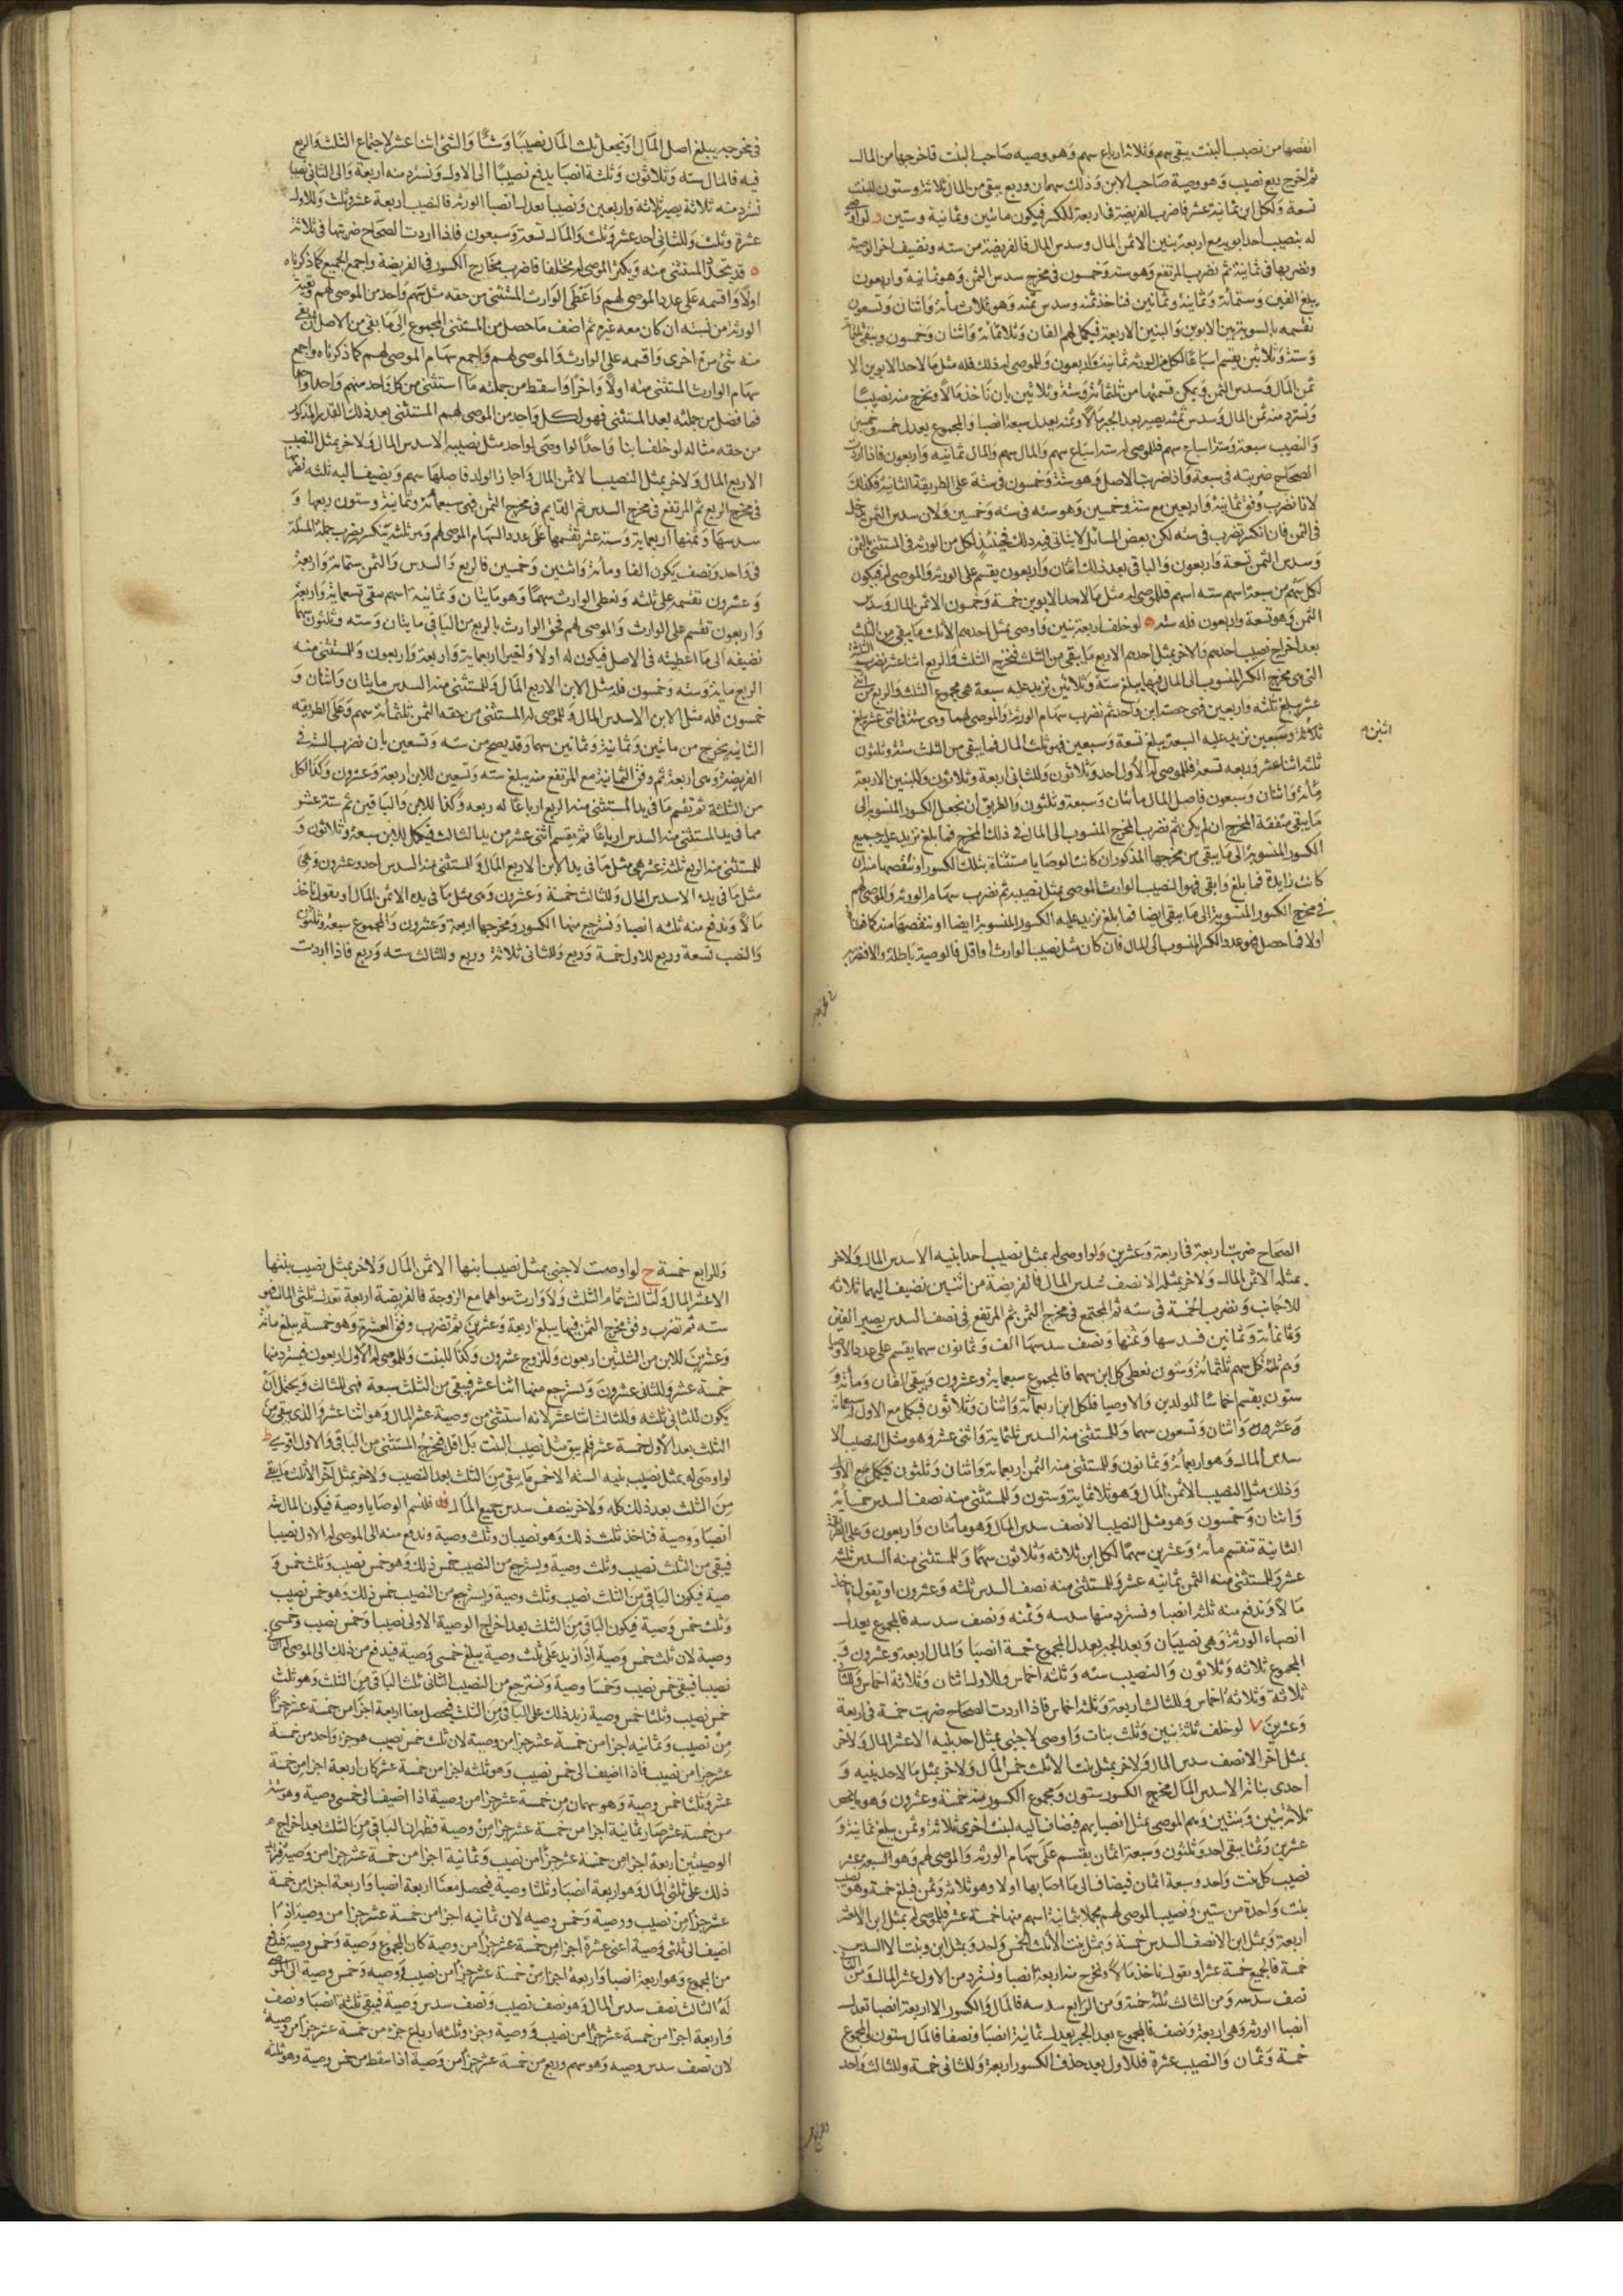 انقصها من نصيب البنت يبقى سهم وثلاثة ارباع سهم وهو وصيه صاحب البنت فاخرجها من المال
ثم اخرج ربع نصيب وهو وصية صاحب الابن وذلك سهمان وربع يبقى من المال ثلاثة وستون للبنت
تسعة ولكل ابن ثمانية عشر فاضرب الفريضة فى اربعة للكسر فيكون مائتين وثمانية وستين د لو اوصى
له بنصيب احد ابويه مع اربعة بنين الاثمن المال وسدس المال فالفريضة من سته ونضيف اخر للوصية
ونضربها فى ثمانية ثم نضرب المرتفع وهو سته وخمسون فى مخرج سدس الثمن وهو ثمانية واربعون
يبلغ الفين وستمائة وثمانية وثمانين فناخذ ثمنه وسدس ثمنه وهو ثلاث مائة واثنان وتسعون
نقسمه بالسوية بين الابوين والبنين الاربعة فيكمل لهم الفان وثلاثمائة واثنان وخمسون ويبقى ثلثمائة
وستة وثلاثين يقسم اسباعا لكل من الورثه ثمانية واربعون وللموصى له كذلك فله مثل ما لاحد الابوين الا
ثمن المال وسدس الثمن ويمكن قسمتها من ثلثمائة وستة وثلاثين بان ناخذ مالا ونخرج منه نصيبا
ونسترد منه ثمن المال وسدس ثمنه يصير بعد الجبر مالا وثمنه يعدل سبعة انصبا والمجموع يعدل خمسة وخمسين
والنصيب سبعة وستة اسباع سهم فللموصى له ستة اسباع سهم والمال سهم والمال ثمانيه واربعون فاذا اردت
الصحاح ضربته فى سبعة واذا ضربت الاصل وهو ستة وخمسون فى ستة على الطريقة الثانية فكذلك
لانا نضرب وفق ثمانية واربعين مع ستة وخمسين وهو سته فى سته وخمسين ولان سدس الثمن يدخل
فى الثمن فان انكسر تضرب فى سته لكن بعض المسائل لا يتاتى فيه ذلك فحينئذ لكل من الورثه فى المستثنى بالثمن
وسدس الثمن تسعة واربعون والباقى بعد ذلك اثنان واربعون يقسم على الورثه والموصى له فيكون
لكل سهم من سبعة اسهم سته اسهم فللموصى له مثل ما لاحد الابوين خمسة وخمسون الاثمن المال وسدس
الثمن وهو تسعة واربعون فله سته ه لو خلف اربعة بنين واوصى بمثل احدهم الا ثلث ما يبقى من الثلث
بعد اخراج نصيب احدهم ولاخر بمثل احدهم الاربع ما يبقى من الثلث فمخرج الثلث والربع اثنا عشر نضرب الثلثة
التى هى مخرج الكسر المنسوب الى المال فيها يبلغ ستة وثلاثين نزيد عليه سبعة هى مجموع الثلث والربع من اثنى
عشر يبلغ ثلثه واربعين فهى حصة ابن واحد ثم نضرب سهام الورثة والموصى لهما وهى ستة فى اثنى عشر يبلغ
ثلاثة وسبعين نزيد عليه السبعة يبلغ تسعة وسبعين فهو ثلث المال فما يبقى من الثلث ستة وثلثون
اثنين م
ثلثه اثنا عشر وربعه تسعة فللموصى له الاول احد وثلاثون وللثانى اربعة وثلاثون وللبنين الاربعة
مائة واثنان وسبعون فاصل المال مائتان وسبعة وثلثون والطريق ان نجعل الكسور المنسوبة الى
ما يبقى متفقة المخرج ان لم يكن ثم نضرب المخرج المنسوب الى المال فى ذلك المخرج فما بلغ نزيد عليه جميع
الكسور المنسوبة الى ما يبقى من مخرجها المذكور ان كانت الوصايا مستثناة بتلك الكسور او ننقصها منه ان
كانت زايدة فما بلغ وابقى فهو النصيب الوارث الموصى بمثل نصيبه ثم نضرب سهام الورثه والموصى لهم
فى مخرج الكسور المنسوبة الى ما يبقى ايضا فما بلغ نزيد عليه الكسور المنسوبة ايضا او ننقصها منه كما قلنا
اولا فما حصل فهو عدد الكسر المنسوب الى المال فان كان مثل نصيب الوارث او اقل فالوصية باطلة والا فنضربه
فى مخرجه يبلغ اصل المال او نجعل ثلث المال نصيبا وشيا والشئ اثنا عشر لاجتماع الثلث والربع
فيه فالمال سته وثلاثون وثلثة انصبا يدفع نصيبا الى الاول ونسترد منه اربعة والى الثانى نصيبا
نسترد منه ثلاثة يصير ثلاثة واربعين ونصيبا يعدل انصبا الورثه فالنصيب اربعة عشر وثلث وللاول
عشرة وثلث وللثانى احد عشر وثلث والمال تسعة وسبعون فاذا اردت الصحاح ضربتها فى ثلاثة
ه قد يتحد المستثنى منه ويكثر الموصى له مختلفا فاضرب مخارج الكسور فى الفريضة واجمع الجميع كما ذكرناه
اولا واقسمه على عدد الموصى لهم واعطى الوارث المستثنى من حقه مثل سهم واحد من الموصى لهم وبقية
الورثة من نسبته ان كان معه غيره ثم اضف ما حصل من المستثنى المجموع الى ما بقى من الاصل ان بقى
منه شئ مرة اخرى واقسمه على الوارث والموصى لهم واجمع سهام الموصى لهم كما ذكرناه واجمع
سهام الوارث المستثنى منه اولا واخرا واسقط من جملته ما استثنى من كل واحد منهم واحدا واحدا
فما فضل من جملته بعد المستثنى فهو لكل واحد من الموصى لهم المستثنى بعد ذلك القدر المذكور
من حقه مثاله لو خلف ابنا واحدا اوصى لواحد مثل نصيبه الا سدس المال ولاخر بمثل النصيب
الاربع المال ولاخر بمثل النصيب الاثمن المال واجاز الولد فاصلها سهم ويضيف اليه ثلثه نضربها
فى مخرج الربع ثم المرتفع فى مخرج السدس ثم القايم فى مخرج الثمن فهى سبعمائة وثمانية وستون ربعها و
سدسها وثمنها اربعماية وستة عشر تقسمها على عدد السهام الموصى لهم وهى ثلثة ينكسر يضرب جملة المسئلة
فى واحد ونصف يكون الفا ومائة واثنين وخمسين فالربع والسدس والثمن ستمائة واربعة
وعشرون تقسمه على ثلثه ونعطى الوارث سهما وهو مايتان وثمانية اسهم يبقى تسعماية واربعة
واربعون تقسم على الوارث والموصى لهم فحق الوارث بالربع من الباقى مايتان وسته وثلثون سهما
نضيفه الى ما اعطيته فى الاصل فيكون له اولا واخيرا اربعماية واربعة واربعون وللمستثنى منه
الربع ماية وسته وخمسون فله مثل الابن الاربع المال وللمستثنى منه السدس مايتان واثنان و
خمسون فله مثل الابن الا سدس المال وللموصى له المستثنى من حقه الثمن ثلثمائة سهم وعلى الطريقه
الثانية يخرج من مائتين وثمانية وثمانين سهما وقد يصح من سته وتسعين بان نضرب الستة فى
الفريضة وهى اربعة ثم وفق الثمانية مع المرتفع منه يبلغ سته وتسعين للابن اربعة وعشرون وكذا لكل
من الثلثة ثم نقسم ما فى يد المستثنى منه الربع ارباعا له ربعه وكذا للابن والباقين ثم ستة عشر
مما فى يد المستثنى منه السدس ارباعا ثم يقسم اثنى عشر من يد الثالث فيكمل للابن سبعة وثلاثون و
للمستثنى منه الربع ثلثة عشر هى مثل ما فى يد الابن الاربع المال وللمستثنى منه السدس احد وعشرون وهى
مثل ما فى يده الا سدس المال وللثالث خمسة وعشرون وهى مثل ما فى يده الاثمن المال او يقول ناخذ
مالا وندفع منه ثلثه انصبا ونسترجع منها الكسور ومخرجها اربعة وعشرون والمجموع سبعة وثلثون
والنصيب تسعة وربع للاول خمسة وربع وللثانى ثلاثة وربع وللثالث سته وربع فاذا اردت
الصحاح ضربت اربعة فى اربعة وعشرين ولو اوصى له بمثل نصيب احد ابنيه الا سدس المال ولاخر
بمثله الاثمن المال ولاخر بمثله الا نصف سدس المال فالفريضة من اثنين نضيف اليها ثلاثه
للاجانب ونضرب الخمسة فى سته ثم المجتمع فى مخرج الثمن ثم المرتفع فى نصف السدس يصير الفين
وثمانمائة وثمانين فسدسها وثمنها ونصف سدسها الف وثمانون سهما يقسم على عدد الاوصيا
وهم ثلثة لكل سهم ثلثمائة وستون نعطى كل ابن سهما فالمجموع سبعماية وعشرون ويبقى الفان ومائة و
ستون يقسم اخماسا للولدين والاوصيا فلكل ابن اربعمائة واثنان وثلاثون فيكمل مع الاول سبعمائة
وعشرون واثنان وتسعون سهما وللمستثنى منه السدس ثلثماية واثنى عشر وهو مثل النصيب الا
سدس المال وهو اربعمائة وثمانون وللمستثنى منه الثمن اربعماية واثنان وثلثون فيكمل مع الاول
وذلك مثل النصيب الاثمن المال وهو ثلاثماية وستون وللمستثنى منه نصف السدس خمسمائة
واثنان وخمسون وهو مثل النصيب الا نصف سدس المال وهو مائتان واربعون وعلى الطريقة
الثانية تنقسم مائة وعشرين سهما لكل ابن ثلاثه وثلاثون سهما وللمستثنى منه السدس ثلثه
عشر وللمستثنى منه الثمن ثمانيه عشر وللمستثنى منه نصف السدس ثلثه وعشرون او تقول ناخذ
مالا وندفع منه ثلثه انصبا ونسترد منها سدسه وثمنه ونصف سدسه فالمجموع يعدل
انصباء الورثة وهى نصيبان وبعد الجبر يعدل المجموع خمسة انصبا والمال اربعه وعشرون و
المجموع ثلاثه وثلاثون والنصيب سته وثلثه اخماس وللاول اثنان وثلاثة اخماس وللثانى
ثلاثة وثلاثة اخماس وللثالث اربعة وثلثه اخماس فاذا اردت الصحاح ضربت خمسة فى اربعة
وعشرين ٧ لو خلف ثلثة بنين وثلث بنات واوصى لاجنبى بمثل احد بنيه الا عشر المال ولاخر
بمثل اخر الا نصف سدس المال ولاخر بمثل بنت الا ثلث خمس المال ولاخر بمثل ما لاحد بنيه و
احدى بناته الا سدس المال مخرج الكسور ستون ومجموع الكسور منه خمسة وعشرون وهو ما يخص
ثلاثة بنين وبنتين وهم الموصى بمثل انصبايهم فيضاف اليه لبنت اخرى ثلاثة وثمن يبلغ ثمانية و
عشرين وثمنا يبقى احد وثلثون وسبعة اثمان يقسم على سهام الورثه والموصى لهم وهو السبعة عشر
نصيب كل بنت واحد وسبعة اثمان فيضاف الى ما اصابها اولا وهو ثلاثة وثمن فيبلغ خمسة وهو نصيب
بنت واحدة من ستين ونصيب الموصى لهم مجملا بثمانية اسهم منها خمسة عشر فللموصى له بمثل ابن الا عشر
اربعة وبمثل ابن الا نصف السدس خمسة وبمثل بنت الا ثلث الخمس واحد وبمثل ابن وبنت الا السدس
خمسة فالجميع خمسة عشر او نقول ناخذ مالا ونخرج منه اربعة انصبا ونسترد من الاول عشر المال ومن الثانى
نصف سدسه ومن الثالث ثلث خمسه ومن الرابع سدسه فالمال والكسور الا اربعة انصبا تعدل
انصبا الورثه وهى اربعة ونصف فالمجموع بعد الجبر يعدل ثمانية انصبا ونصفا فالمال ستون والمجموع
خمسة وثمان والنصيب عشرة فللاول بعد حذف الكسور اربعة وللثانى خمسة وللثالث واحد
وللرابع خمسة ح لو اوصت لاجنبى بمثل نصيب ابنها الاثمن المال ولاخر بمثل نصيب بنتها
الا عشر المال ولثالث تمام الثلث ولا وارث سواهما مع الزوجة فالفريضة اربعة تعدل ثلثى المال فهو
سته ثم نضرب وفق مخرج الثمن فيها يبلغ اربعة وعشرين ثم نضرب وفق العشرة وهو خمسة يبلغ مائة
وعشرين للابن من الثلثين اربعون وللزوج عشرون وكذا للبنت وللموصى له الاول اربعون فيسترد منها
خمسة عشر وللثانى عشرون ويسترجع منها اثنا عشر فيبقى من الثلث سبعة فهى للثالث ويحتمل ان
يكون للثانى ثلثه وللثالث اثنا عشر لانه استثنى من وصية عشر المال وهو اثنا عشر والذى يبقى من
الثلث بعد الاول خمسة عشر فلم يبق مثل نصيب البنت بل اقل فيخرج المستثنى من الباقى والاول اقوى ط
لو اوصى له بمثل نصيب بنيه السته الا خمس ما يبقى من الثلث بعد النصيب ولاخر بمثل اخر الا ثلث ما يبقى
من الثلث بعد ذلك كله ولاخر بنصف سدس جميع المال فلنسم الوصايا وصية فيكون المال سته
انصبا ووصية فناخذ ثلث ذلك وهو نصيبان وثلث وصية وندفع منه الى الموصى له الاول نصيبا
فيبقى من الثلث نصيب وثلث وصية ويسترجع من النصيب خمس ذلك وهو خمس نصيب وثلث خمس و
صية فيكون الباقى من الثلث نصيب وثلث وصية ويسترجع من النصيب خمس ذلك وهو خمس نصيب
وثلث خمس وصية فيكون الباقى من الثلث بعد اخراج الوصية الاولى نصيبا وخمس نصيب وخمسى
وصية لان ثلث خمس وصية اذا زيد على ثلث وصية يبلغ خمسى وصية فيدفع من ذلك الى الموصى له الثانى
نصيبا فيبقى خمس نصيب وخمسا وصية ونسترجع من النصيب الثانى ثلث الباقى من الثلث وهو ثلث
خمس نصيب وثلثا خمس وصية نزيد ذلك على الباقى من الثلث فيحصل معنا اربعة اجزا من خمسة عشر جزءا
من نصيب وثمانيه اجزا من خمسة عشر جزا من وصية لان ثلث خمس نصيب هو جزء واحد من خمسة
عشر جزا من نصيب فاذا اضيف الى خمس نصيب وهو ثلثه اجزا من خمسة عشر كان اربعة اجزا من خمسة
عشر وثلثا خمس وصية وهو سهمان من خمسة عشر جزا من وصية اذا اضيف الى خمسى وصية وهو ستة
من خمسة عشر صار ثمانية اجزا من خمسة عشر جزا من وصية فظهر ان الباقى من الثلث بعد اخراج
الوصيتين اربعة اجزا من خمسة عشر جزءا من نصيب وثمانية اجزا من خمسة عشر جزا من وصية فزد
ذلك على ثلثى المال وهو اربعة انصبا وثلثا وصية فيحصل معنا اربعة انصبا واربعة اجزا من خمسة
عشر جزا من نصيب ووصية وخمس وصيه لان ثمانيه اجزا من خمسة عشر جزا من وصية اذا
اضيف الى ثلثى وصية اعنى عشرة اجزا من خمسة عشر جزءا من وصية كان المجموع وصية وخمس وصية فندفع
من المجموع وهو اربعة انصبا واربعة اجزا من خمسة عشر جزءا من نصيب ووصيه وخمس وصية الى الموصى
له الثالث نصف سدس المال وهو نصف نصيب ونصف سدس وصية فيبقى ثلثة انصبا ونصف
واربعة اجزا من خمسة عشر جزءا من نصيب ووصية وجزء وثلثه ارباع جزء من خمسة عشر جزءا من وصية
لان نصف سدس وصيه وهو سهم وربع من خمسة عشر جزءا من وصية اذا سقط من خمس وصية وهو ثلثه